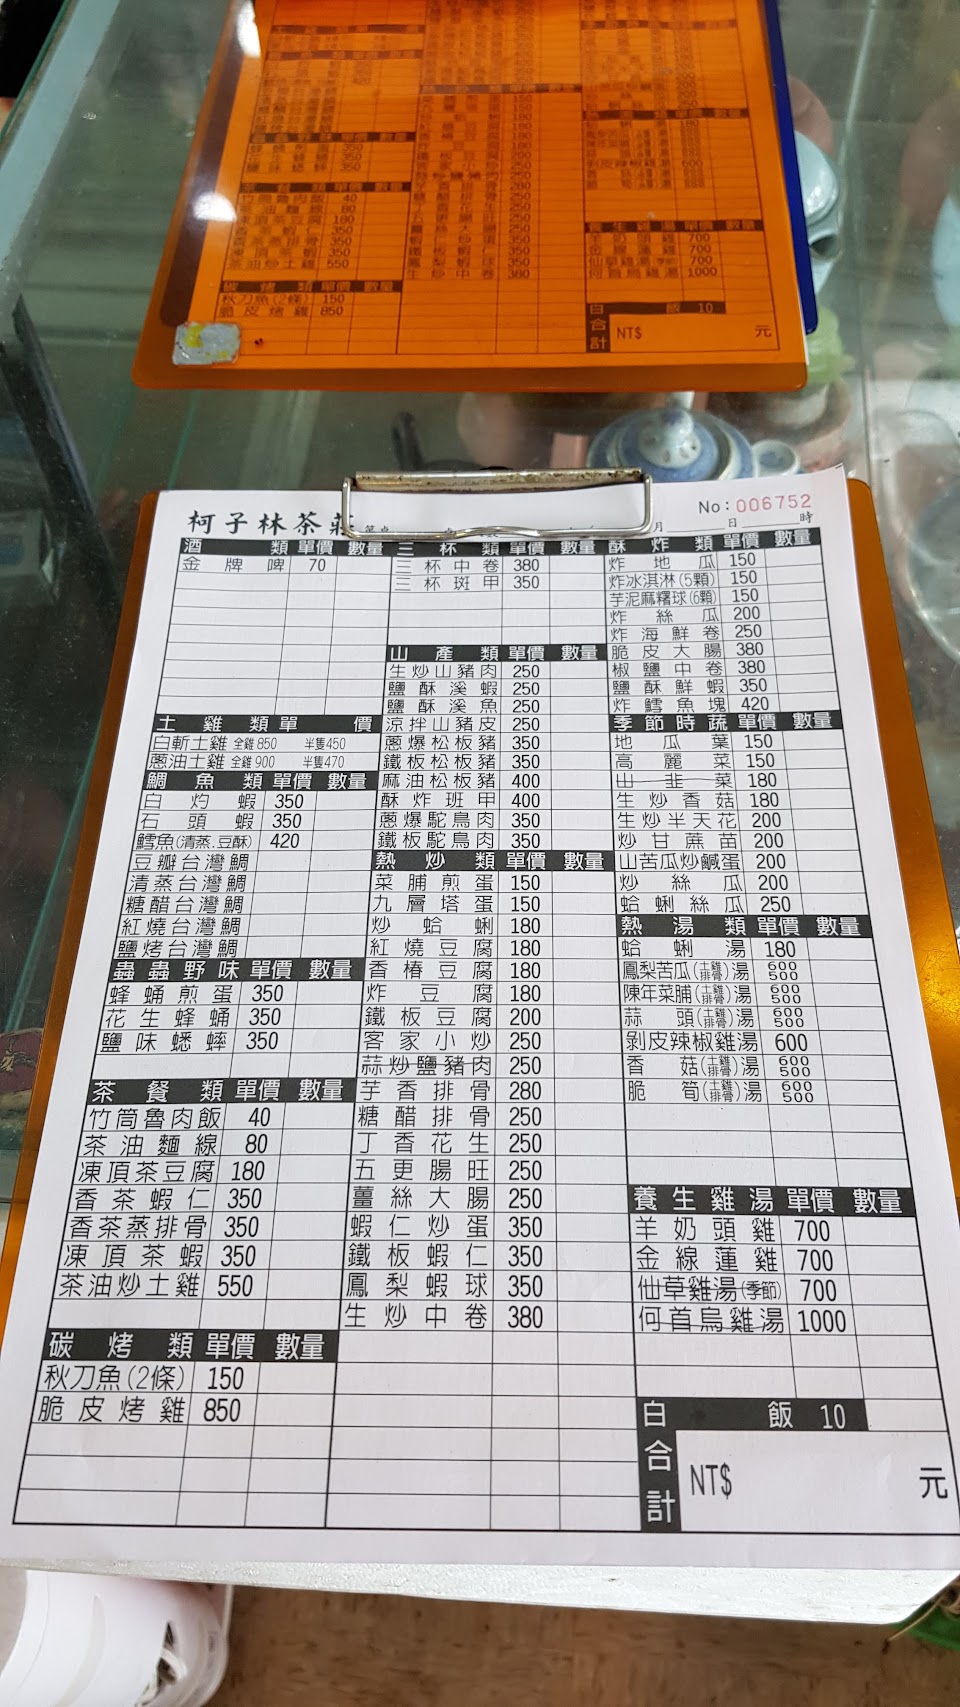 柯子林茶莊
No:006752
月 日 時
酒類 單價 數量
金牌啤 70
土雞類 單價
白斬土雞 全雞850 半隻450
蔥油土雞 全雞900 半隻470
鯛魚類 單價 數量
白灼蝦 350
石頭蝦 350
鱈魚(清蒸.豆酥) 420
豆瓣台灣鯛
清蒸台灣鯛
糖醋台灣鯛
紅燒台灣鯛
鹽烤台灣鯛
蟲蟲野味 單價 數量
蜂蛹煎蛋 350
花生蜂蛹 350
鹽味蟋蟀 350
茶餐類 單價 數量
竹筒魯肉飯 40
茶油麵線 80
凍頂茶豆腐 180
香茶蝦仁 350
香茶蒸排骨 350
凍頂茶蝦 350
茶油炒土雞 550
碳烤類 單價 數量
秋刀魚(2條) 150
脆皮烤雞 850
三杯類 單價 數量
三杯中卷 380
三杯斑甲 350
山產類 單價 數量
生炒山豬肉 250
鹽酥溪蝦 250
鹽酥溪魚 250
涼拌山豬皮 250
蔥爆松板豬 350
鐵板松板豬 350
麻油松板豬 400
酥炸斑甲 400
蔥爆駝鳥肉 350
鐵板駝鳥肉 350
熱炒類 單價 數量
菜脯煎蛋 150
九層塔蛋 150
炒蛤蜊 180
紅燒豆腐 180
香椿豆腐 180
炸豆腐 180
鐵板豆腐 200
客家小炒 250
蒜炒鹽豬肉 250
芋香排骨 280
糖醋排骨 250
丁香花生 250
五更腸旺 250
薑絲大腸 250
蝦仁炒蛋 350
鐵板蝦仁 350
鳳梨蝦球 350
生炒中卷 380
酥炸類 單價 數量
炸地瓜 150
炸冰淇淋(5顆) 150
芋泥麻糬球(6顆) 150
炸絲瓜 200
炸海鮮卷 250
脆皮大腸 380
椒鹽中卷 380
鹽酥鮮蝦 350
炸鱈魚塊 420
季節時蔬 單價 數量
地瓜葉 150
高麗菜 150
山韭菜 180
生炒香菇 180
生炒半天花 200
炒甘蔗苗 200
山苦瓜炒鹹蛋 200
炒絲瓜 200
蛤蜊絲瓜 250
熱湯類 單價 數量
蛤蜊湯 180
鳳梨苦瓜(土雞 排骨)湯 600 500
陳年菜脯(土雞 排骨)湯 600 500
蒜頭(土雞 排骨)湯 600 500
剝皮辣椒雞湯 600
香菇(土雞 排骨)湯 600 500
脆筍(土雞 排骨)湯 600 500
養生雞湯 單價 數量
羊奶頭雞 700
金線蓮雞 700
仙草雞湯(季節) 700
何首烏雞湯 1000
白飯 10
合計 NT$ 元